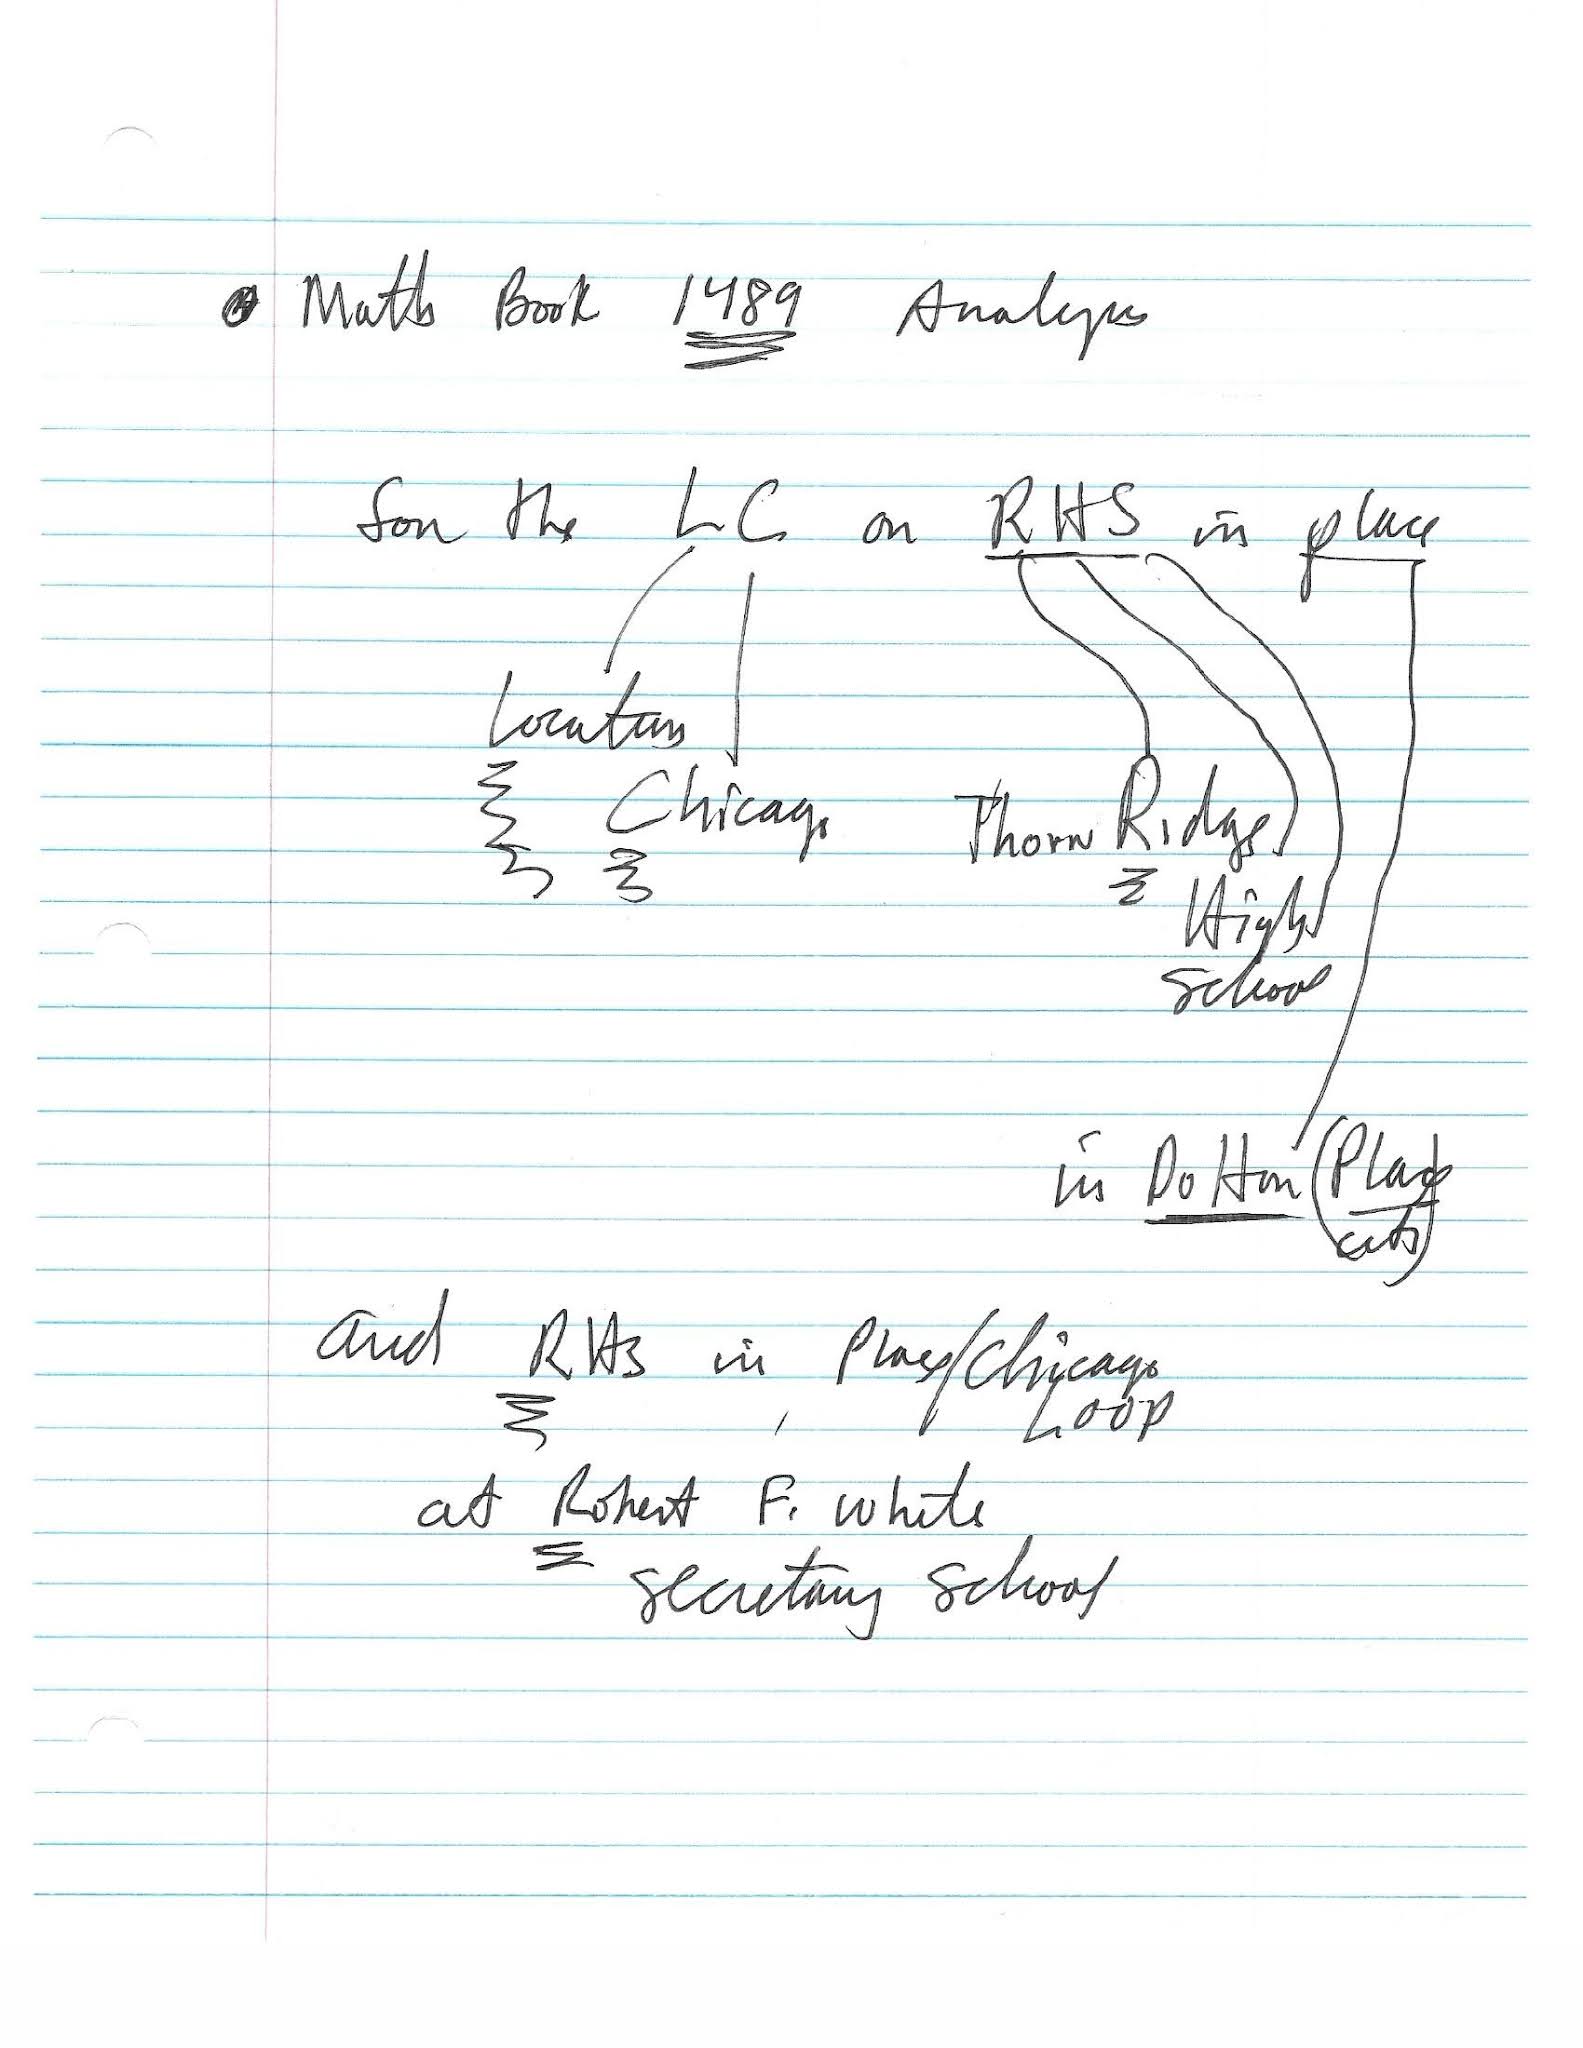 Math Book 1489 Analysis
for the LC on RHS in place
Location
Chicago
Thorn Ridge
High
School
in Dolton (Place
and RHS in Place/Chicago
LOOP
at Robert F. White
secretary school